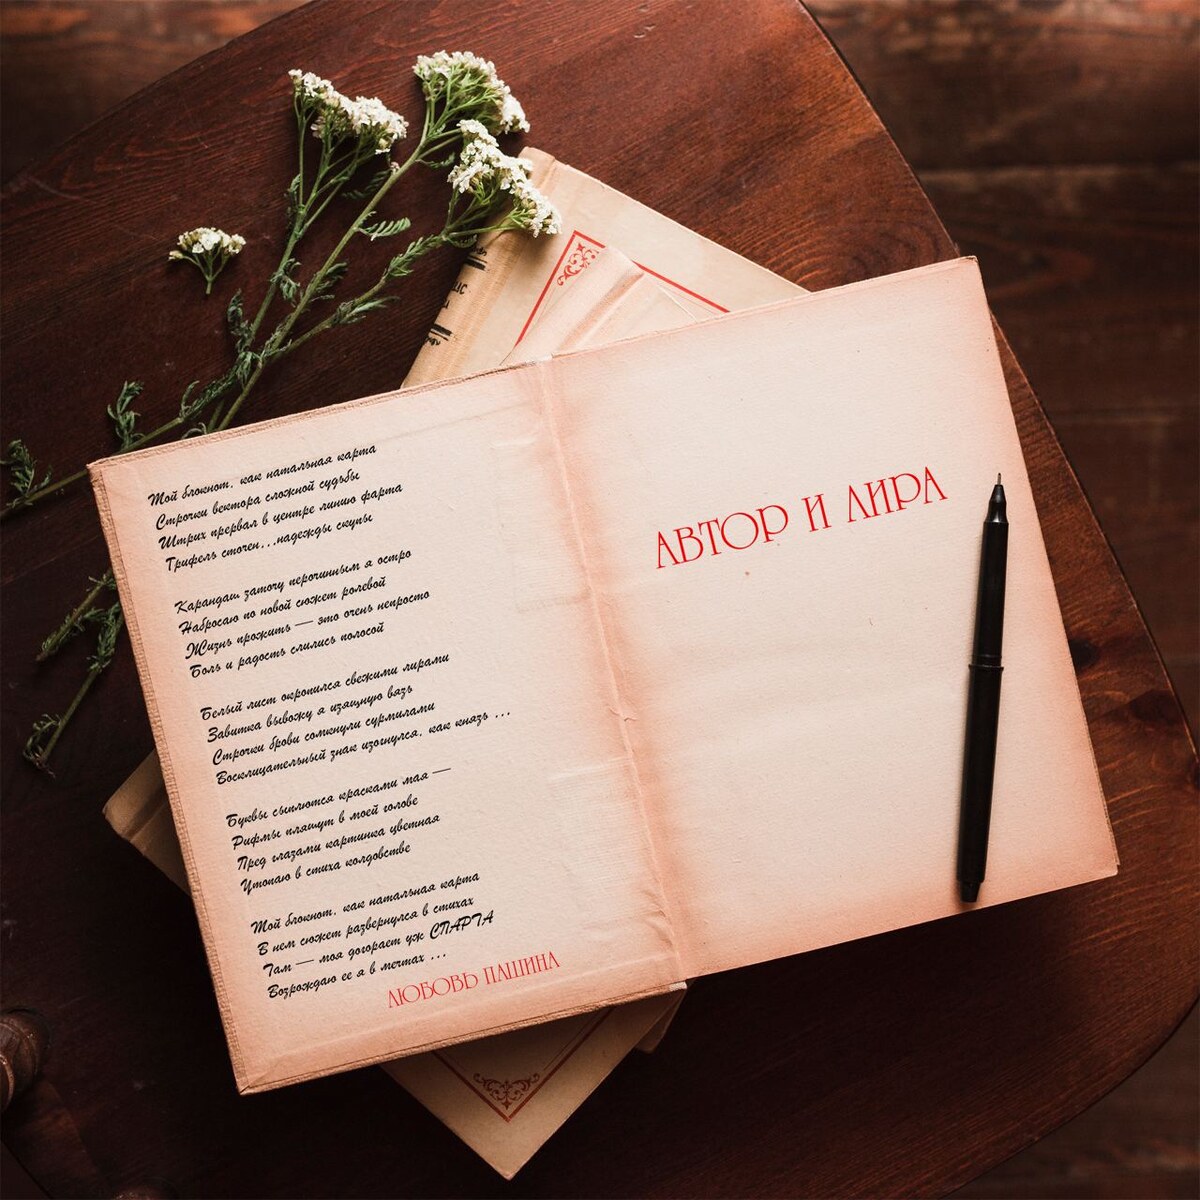 Мой блокнот, как натальная карта
Строчки вектора сложной судьбы
Штрих прервал в центре линию фарта
Грифель сточен...надежды скупы
Карандаш заточу перочинным я остро
Набросаю по новой сюжет ролевой
Жизнь прожить — это очень непросто
Боль и радость слились полосой
Белый лист окропился свежими лирами
Завитка вывожу я изящную вязь
Строчки брови сомкнули сурмилами
Восклицательный знак изогнулся, как князь ...
Буквы сыплются красками мая —
Рифмы пляшут в моей голове
Пред глазами картинка цветная
Утопаю в стиха колдовстве
Мой блокнот, как натальная карта
В нем сюжет развернулся в стихах
Там — моя догорает уж СПАРТА
Возрождаю ее я в мечтах ...
ЛЮБОВЬ ПАШИНА
АВТОР И ЛИРА